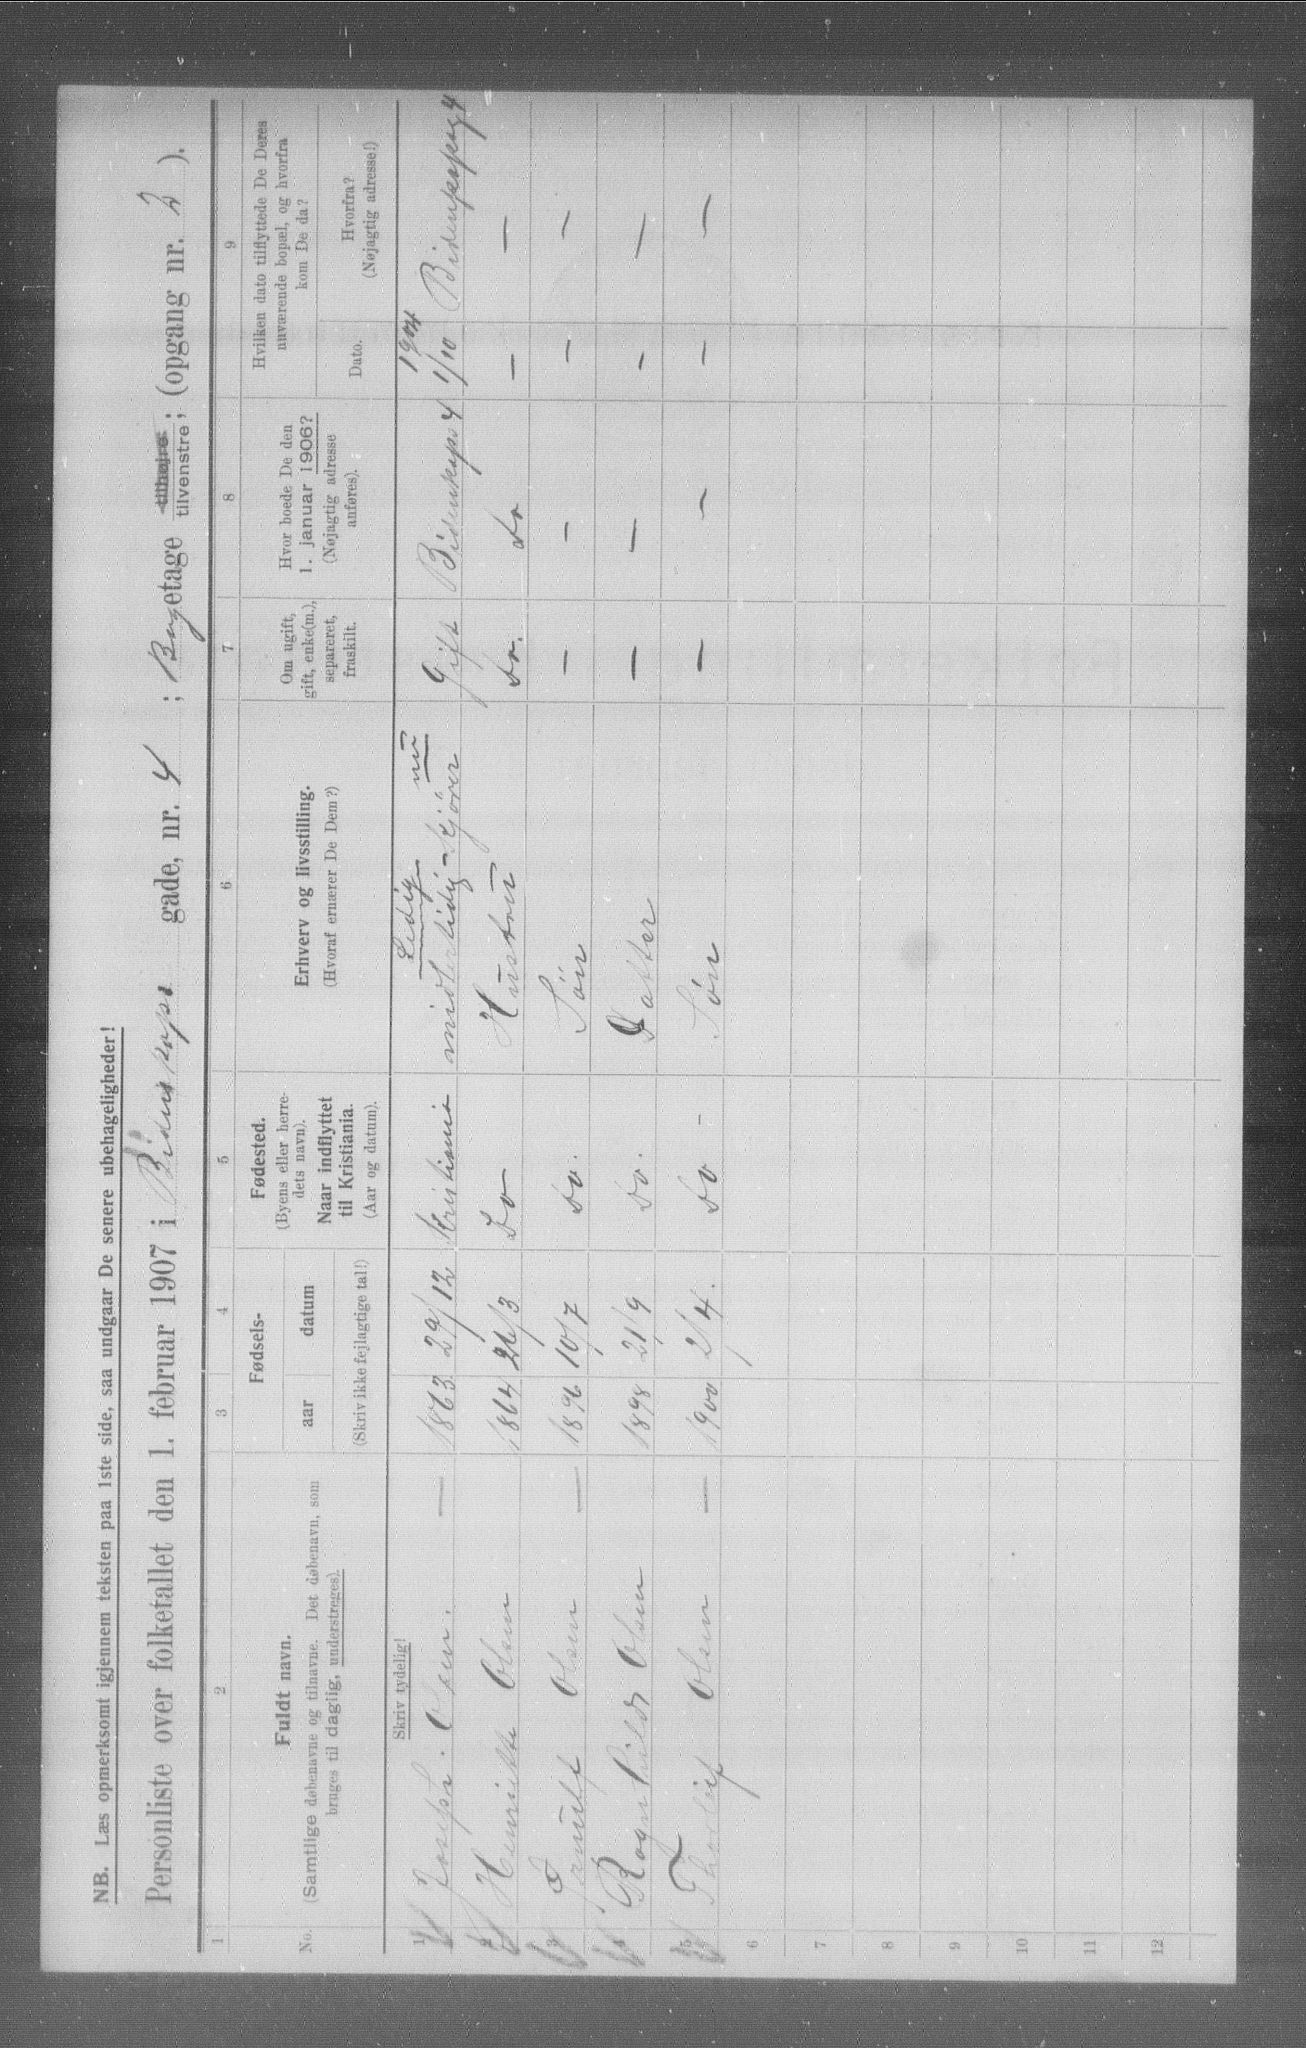 NB. Læs opmerksomt igjennem teksten paa 1ste side, saa undgaar De senere ubehageligheder!
Personliste over folketallet den 1. februar 1907 i gade, nr. 4 ; etage tilhøjre tilvenstre ; (opgang nr. 2 ).
1 2 3 4 5 6 7 8 9
No. Fuldt navn. (Samtlige døbenavne og tilnavne. Det døbenavn, som bruges til daglig, understreges).
Fødsels-
aar datum
(Skriv ikke fejlagtige tal!)
Fødested. (Byens eller herredets navn). Naar indflyttet til Kristiania. (Aar og datum).
Erhverv og livsstilling. (Hvoraf ernærer De Dem?)
Om ugift, gift, enke(m.), separeret, fraskilt.
Hvor boede De den 1. januar 1906? (Nøjagtig adresse anføres).
Hvilken dato tilflyttede De Deres nuværende bopæl, og hvorfra kom De da?
Dato. Hvorfra? (Nøjagtig adresse!)
Skriv tydelig!
Ledig nu 1904
1 Josef Olsen. — 1863 29/12 Kristiania midlertidig kjører Gift 4 1/10 4
2 Henriette Olsen 1864 26/3 Do Hustru Do. Do — —
3 Olsen — 1896 10/7 Do. Søn — — — —
4 Ragnhild Olsen 1898 21/9 Do. Datter — — — —
5 Thorleif Olsen — 1900 2/4. Do - Søn — — — —
6
7
8
9
10
11
12